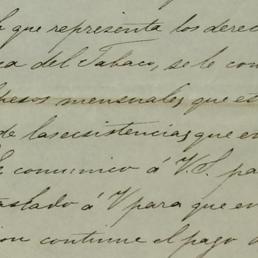 que representa los derec
ca del Tabaco, se le con
pesos mensuales que es
de las ecsistencias, que en
Lo comunico á V.S. pa
traslado á V para que en
ion continue el pago d